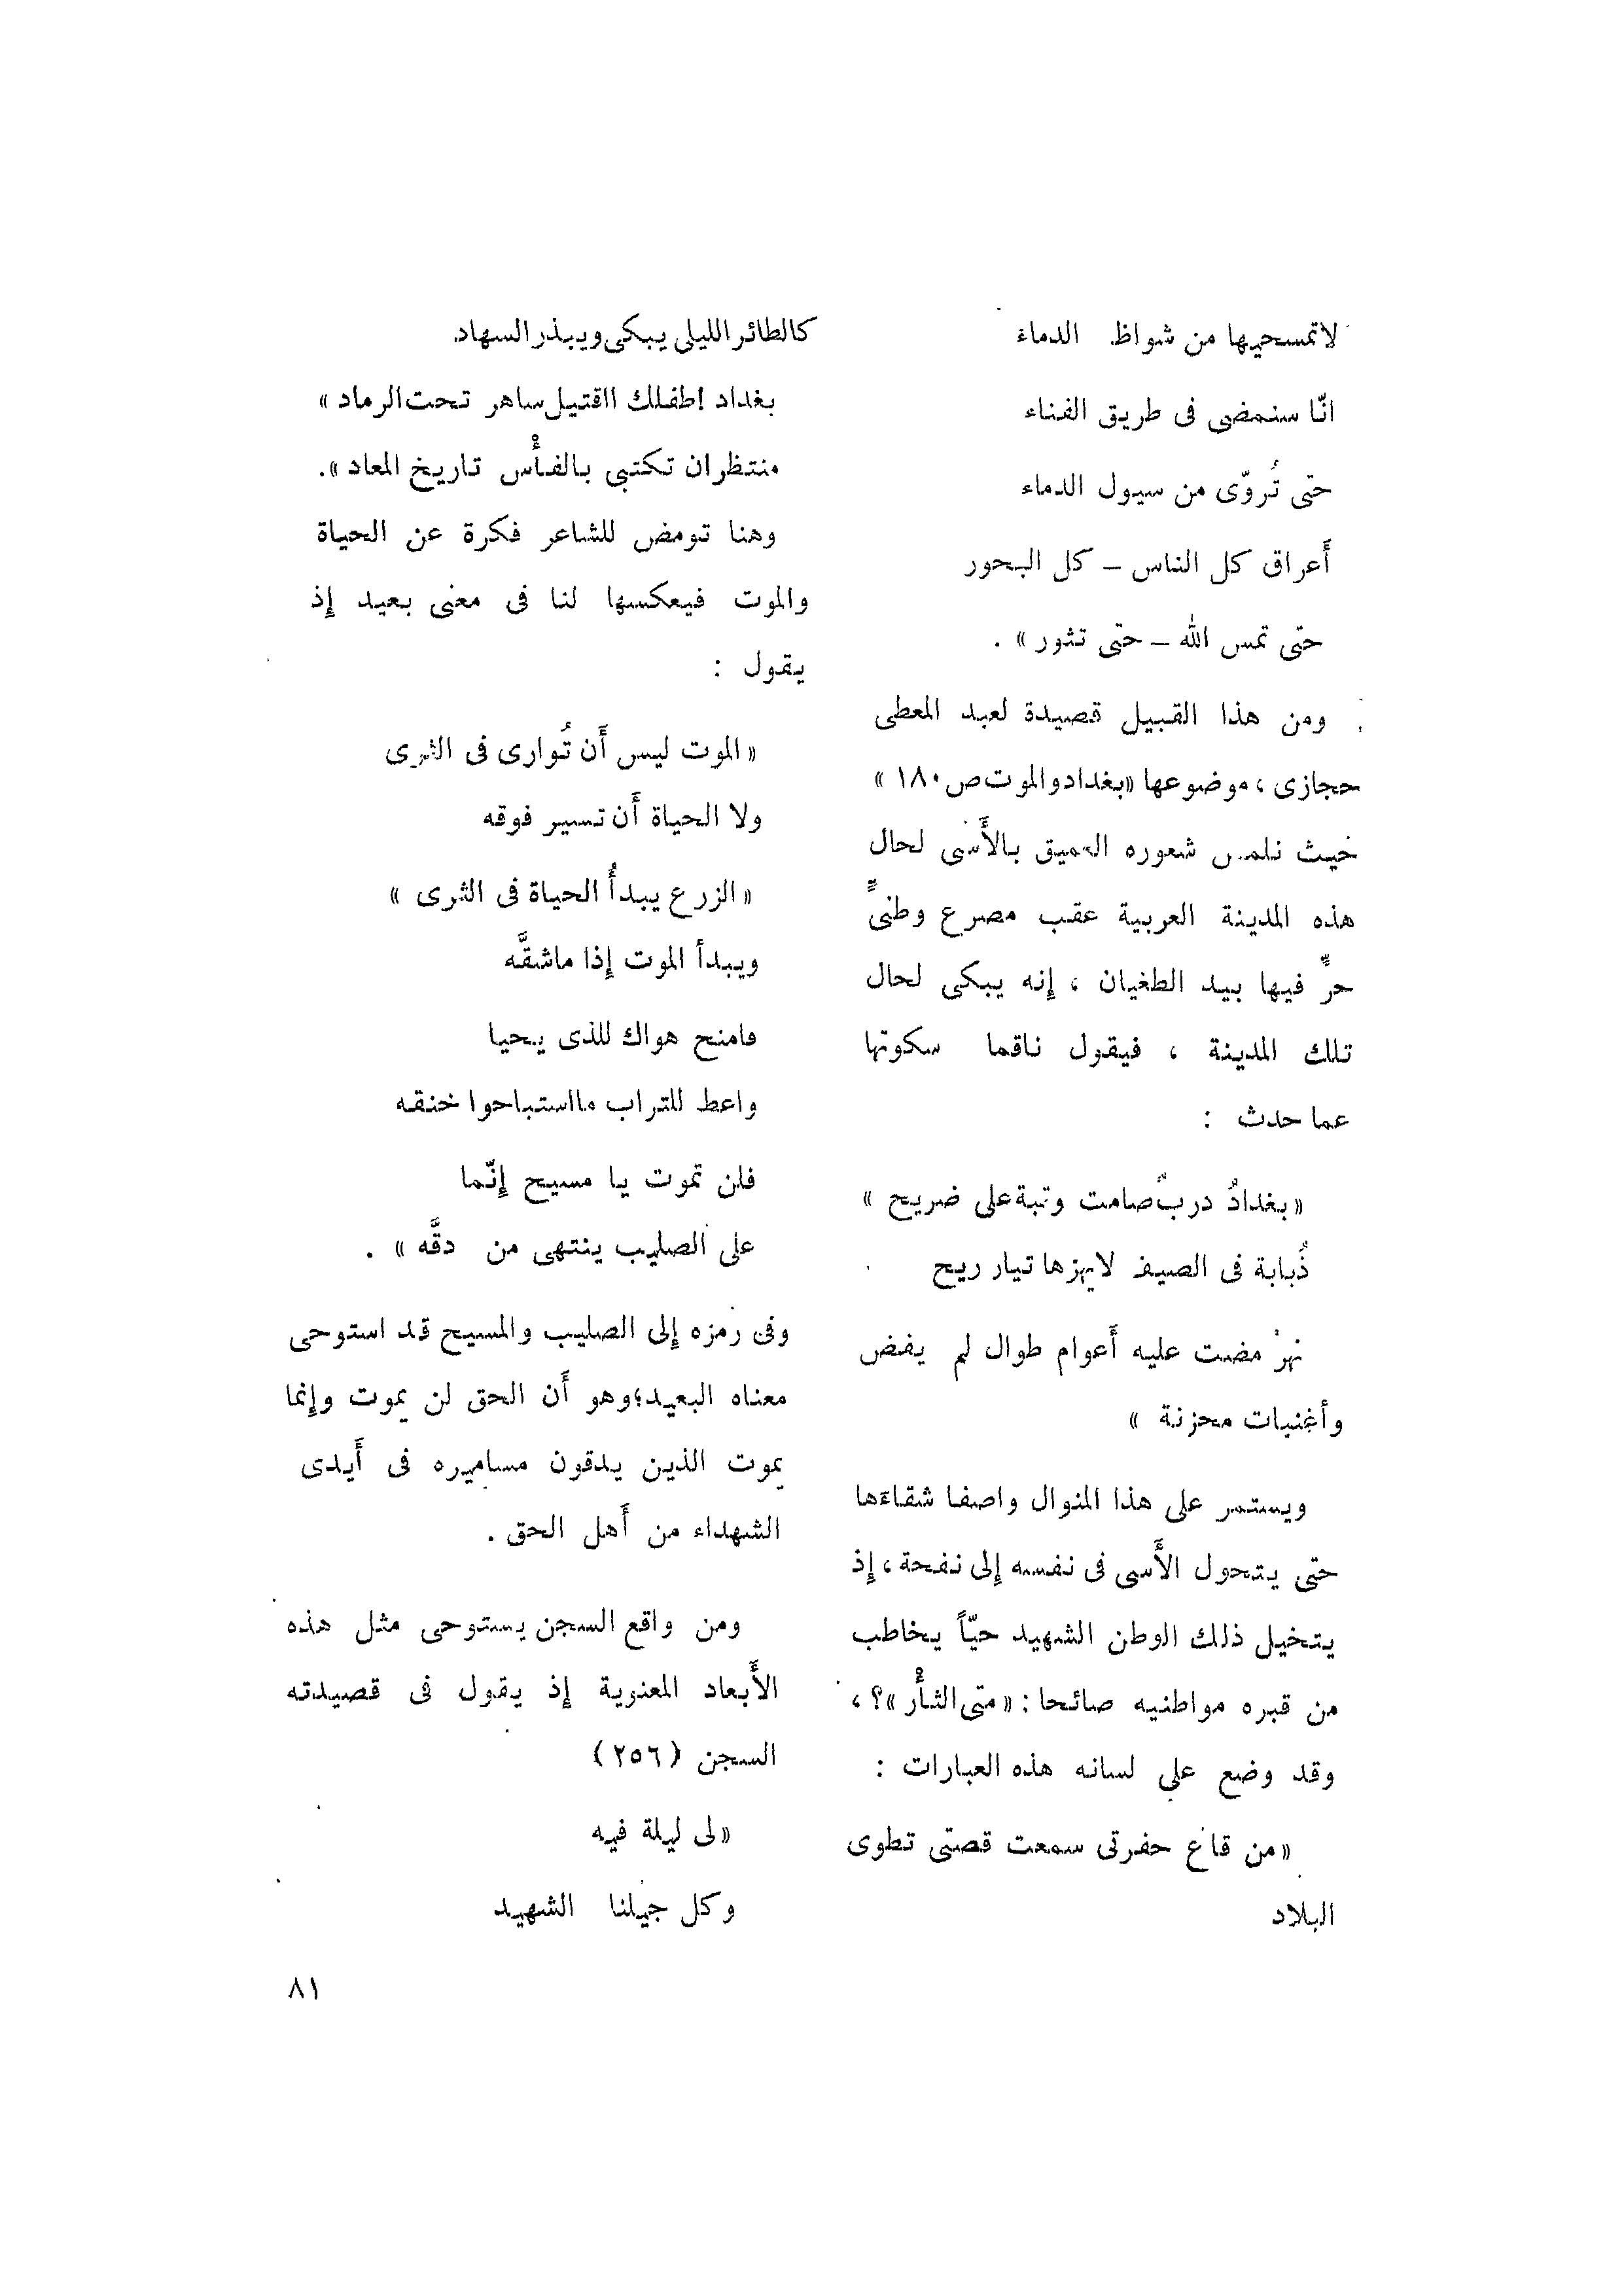 لاتمسحيها من شواظ. الدماء
انّا سنمضى فى طريق الفناء
حتى تُروّى من سيول الدماء
أعراق كل الناس – كل البحور
حتى تمس الله – حتى تثور » .
ومن هذا القبيل قصيدة لعبد المعطى
حجازى ، موضوعها «بغداد والموت ص ١٨٠ »
حيث نلمس شعوره العميق بالأَسى لحال
هذه المدينة العربية عقب مصرع وطنىٍّ
حرٍّ فيها بيد الطغيان ، إنه يبكى لحال
تلك المدينة ، فيقول ناقما سكوتها
عما حدث :
«بغدادُ دربٌ صامت وقبة على ضريح »
ذُبابة فى الصيف لايهزها تيار ريح
نهرْ مضت عليه أَعوام طوال لم يفض
وأغنيات محزنة »
ويستمر على هذا المنوال واصفا شقاءَها
حتى يتحول الأَسى فى نفسه إلى نفحة ، إذ
يتخيل ذلك الوطن الشهيد حيّاً يخاطب
من قبره مواطنيه صائحا : « متى الثأْر »؟ ،
وقد وضع على لسانه هذه العبارات :
«من قاع حفرتى سمعت قصتى تطوى
البلاد
كالطائر الليلى يبكى ويبذر السهاد
بغداد طفلك القتيل ساهر تحت الرماد »
منتظران تكتبى بالفأْس تاريخ المعاد ».
وهنا تومض للشاعر فكرة عن الحياة
والموت فيعكسها لنا فى معنى بعيد إذ
يقول :
« الموت ليس أَن تُوارى فى الثرى
ولا الحياة أَن تسير فوقه
« الزرع يبدأُ الحياة فى الثرى »
ويبدأ الموت إذا ماشقَّه
فامنح هواك للذى يحيا
واعط للتراب مااستباحوا خنقه
فلن تموت يا مسيح إنّما
على الصليب ينتهى من دقَّه » .
وفى رمزه إلى الصليب والمسيح قد استوحى
معناه البعيد؛وهو أَن الحق لن يموت وإنما
يموت الذين يدقون مساميره فى أَيدى
الشهداء من أَهل الحق .
ومن واقع السجن يستوحى مثل هذه
الأَبعاد المعنوية إذ يقول فى قصيدته
السجن (٢٥٦)
«لى ليلة فيه
وكل جيلنا الشهيد
٨١